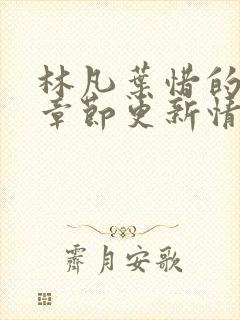 林凡葉惜的
章節更新情
霽月安歌